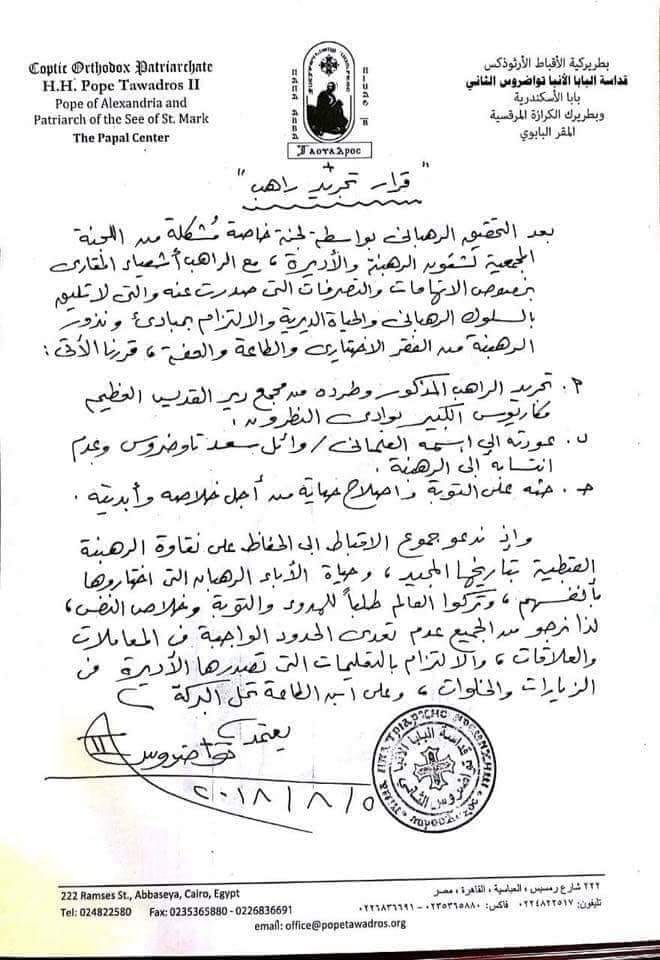 Coptic Orthodox Patriarchate
H.H. Pope Tawadros II
Pope of Alexandria and
Patriarch of the See of St. Mark
The Papal Center
بطريركية الأقباط الأرثوذكس
قداسة البابا الأنبا تواضروس الثاني
بابا الأسكندرية
وبطريرك الكرازة المرقسية
المقر البابوي
"قرار تجريد راهب"
بعد التحقيق الرهبانى بواسطة لجنة خاصة مُشكلة من اللجنة
المجمعية لشئون الرهبنة والأديرة، مع الراهب أشعياء المقارى
بخصوص الاتهامات والتصرفات التى صدرت عنه والتى لا تليق
بالسلوك الرهبانى والحياة الديرية والالتزام بمبادئ ونذور
الرهبنة من الفقر الاختيارى والطاعة والعفة، قررنا الآتى:
أ. تجريد الراهب المذكور وطرده من مجمع دير القديس العظيم
مكاريوس الكبير بوادى النطرون.
ب. عودته إلى اسمه العلمانى/ وائل سعد تاوضروس وعدم
انتسابه إلى الرهبنة.
جـ. حثه على التوبة وإصلاح حياته من أجل خلاصه وأبديته.
وإذ ندعو جموع الاقباط إلى الحفاظ على نقاوة الرهبنة
القبطية بتاريخها المجيد، وحياة الأباء الرهبان التى اختاروها
بأنفسهم، وتركوا العالم طلباً للهدوء والتوبة وخلاص النفس،
لذا نرجو من الجميع عدم تعدى الحدود الواجبة فى المعاملات
والعلاقات، والالتزام بالتعليمات التى تصدرها الأديرة فى
الزيارات والخلوات، وعلى ابن الطاعة تحل البركة
يعتمد
تواضروس
٢٠١٨/٨/٥
قداسة البابا الأنبا
تواضروس الثانى
222 Ramses St., Abbaseya, Cairo, Egypt
Tel: 024822580 Fax: 0235365880 - 0226836691
٢٢٢ شارع رمسيس، العباسية، القاهرة، مصر
تليفون: ٠٢٤٨٢٢٥١٧ فاكس: ٠٢٣٥٣٦٥٨٨٠ - ٠٢٢٦٨٣٦٦٩١
email: office@popetawadros.org